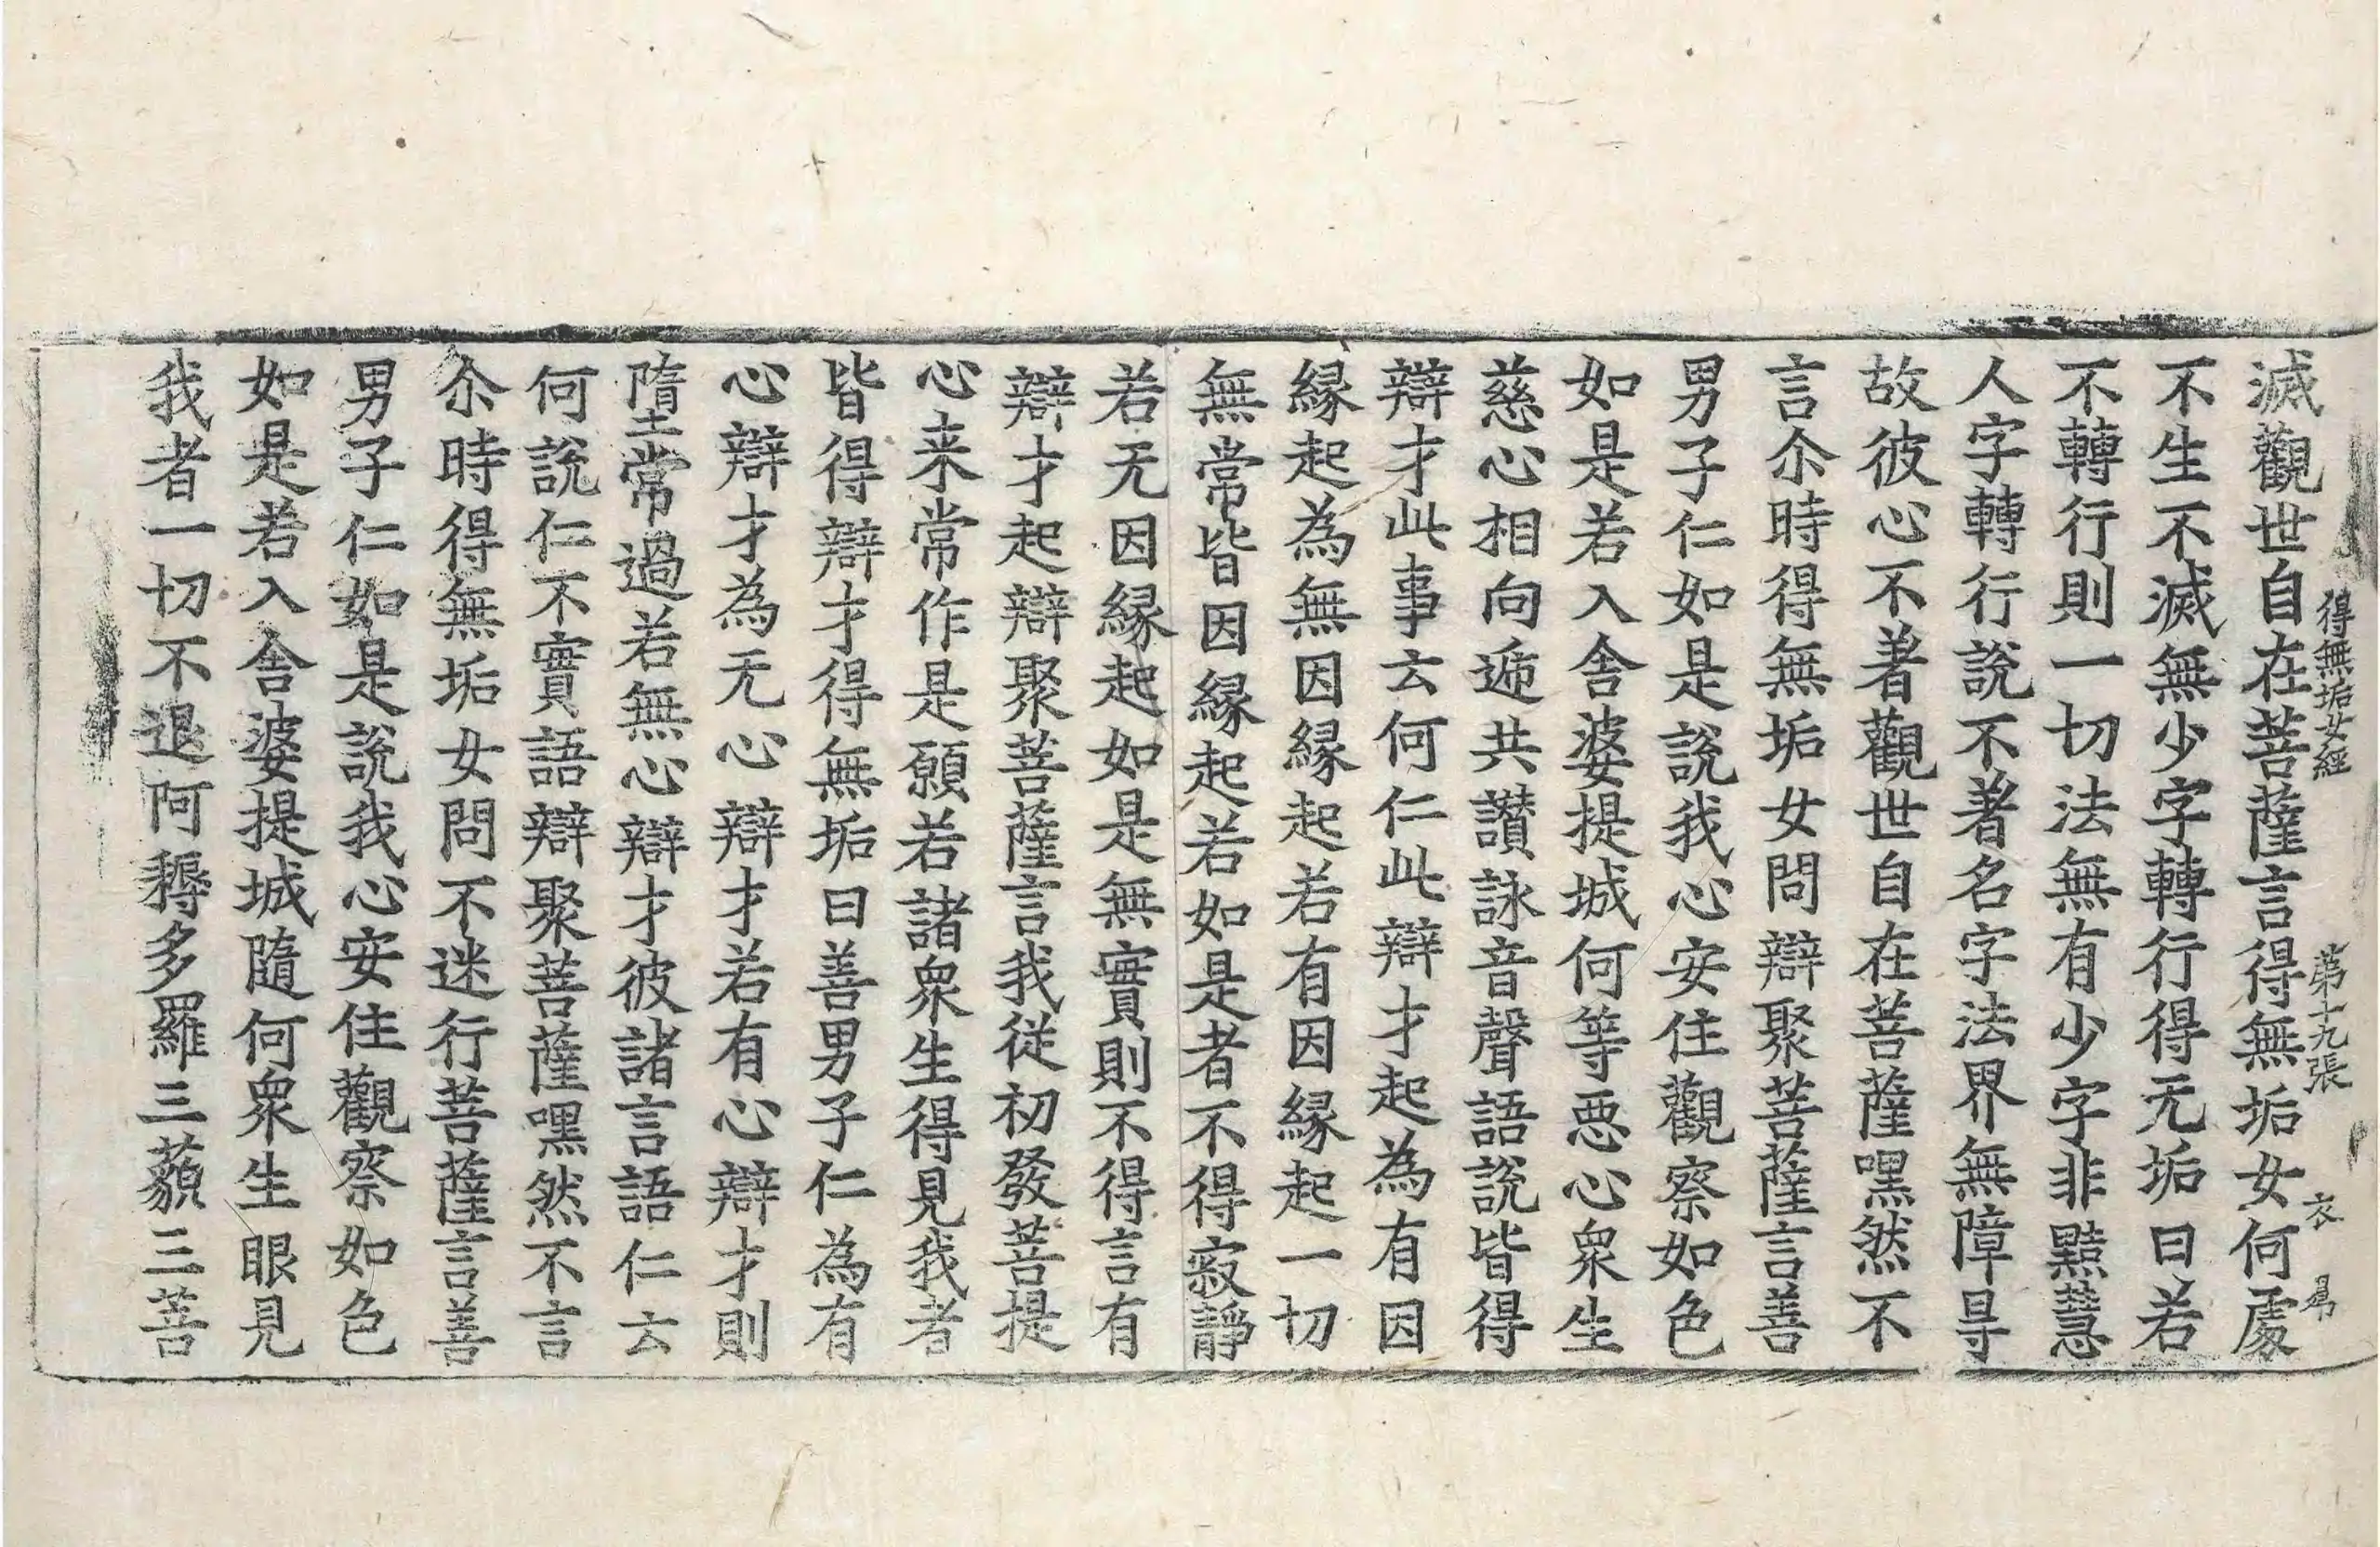 得無垢女經 第十九張 衣
滅觀世自在菩薩言得無垢女何處
不生不滅無少字轉行得无垢曰若
不轉行則一切法無有少字非黠慧
人字轉行說不著名字法界無障㝵
故彼心不著觀世自在菩薩嘿然不
言尒時得無垢女問辯聚菩薩言善
男子仁如是說我心安住觀察如色
如是若入舍婆提城何等惡心衆生
慈心相向遞共讚詠音聲語說皆得
辯才此事云何仁此辯才起為有因
緣起為無因緣起若有因緣起一切
無常皆因緣起若如是者不得寂靜
若无因緣起如是無實則不得言有
辯才起辯聚菩薩言我從初發菩提
心来常作是願若諸衆生得見我者
皆得辯才得無垢曰善男子仁為有
心辯才為无心辯才若有心辯才則
墮常過若無心辯才彼諸言語仁云
何說仁不實語辯聚菩薩嘿然不言
尒時得無垢女問不迷行菩薩言善
男子仁如是說我心安住觀察如色
如是若入舍婆提城隨何衆生眼見
我者一切不退阿耨多羅三藐三菩